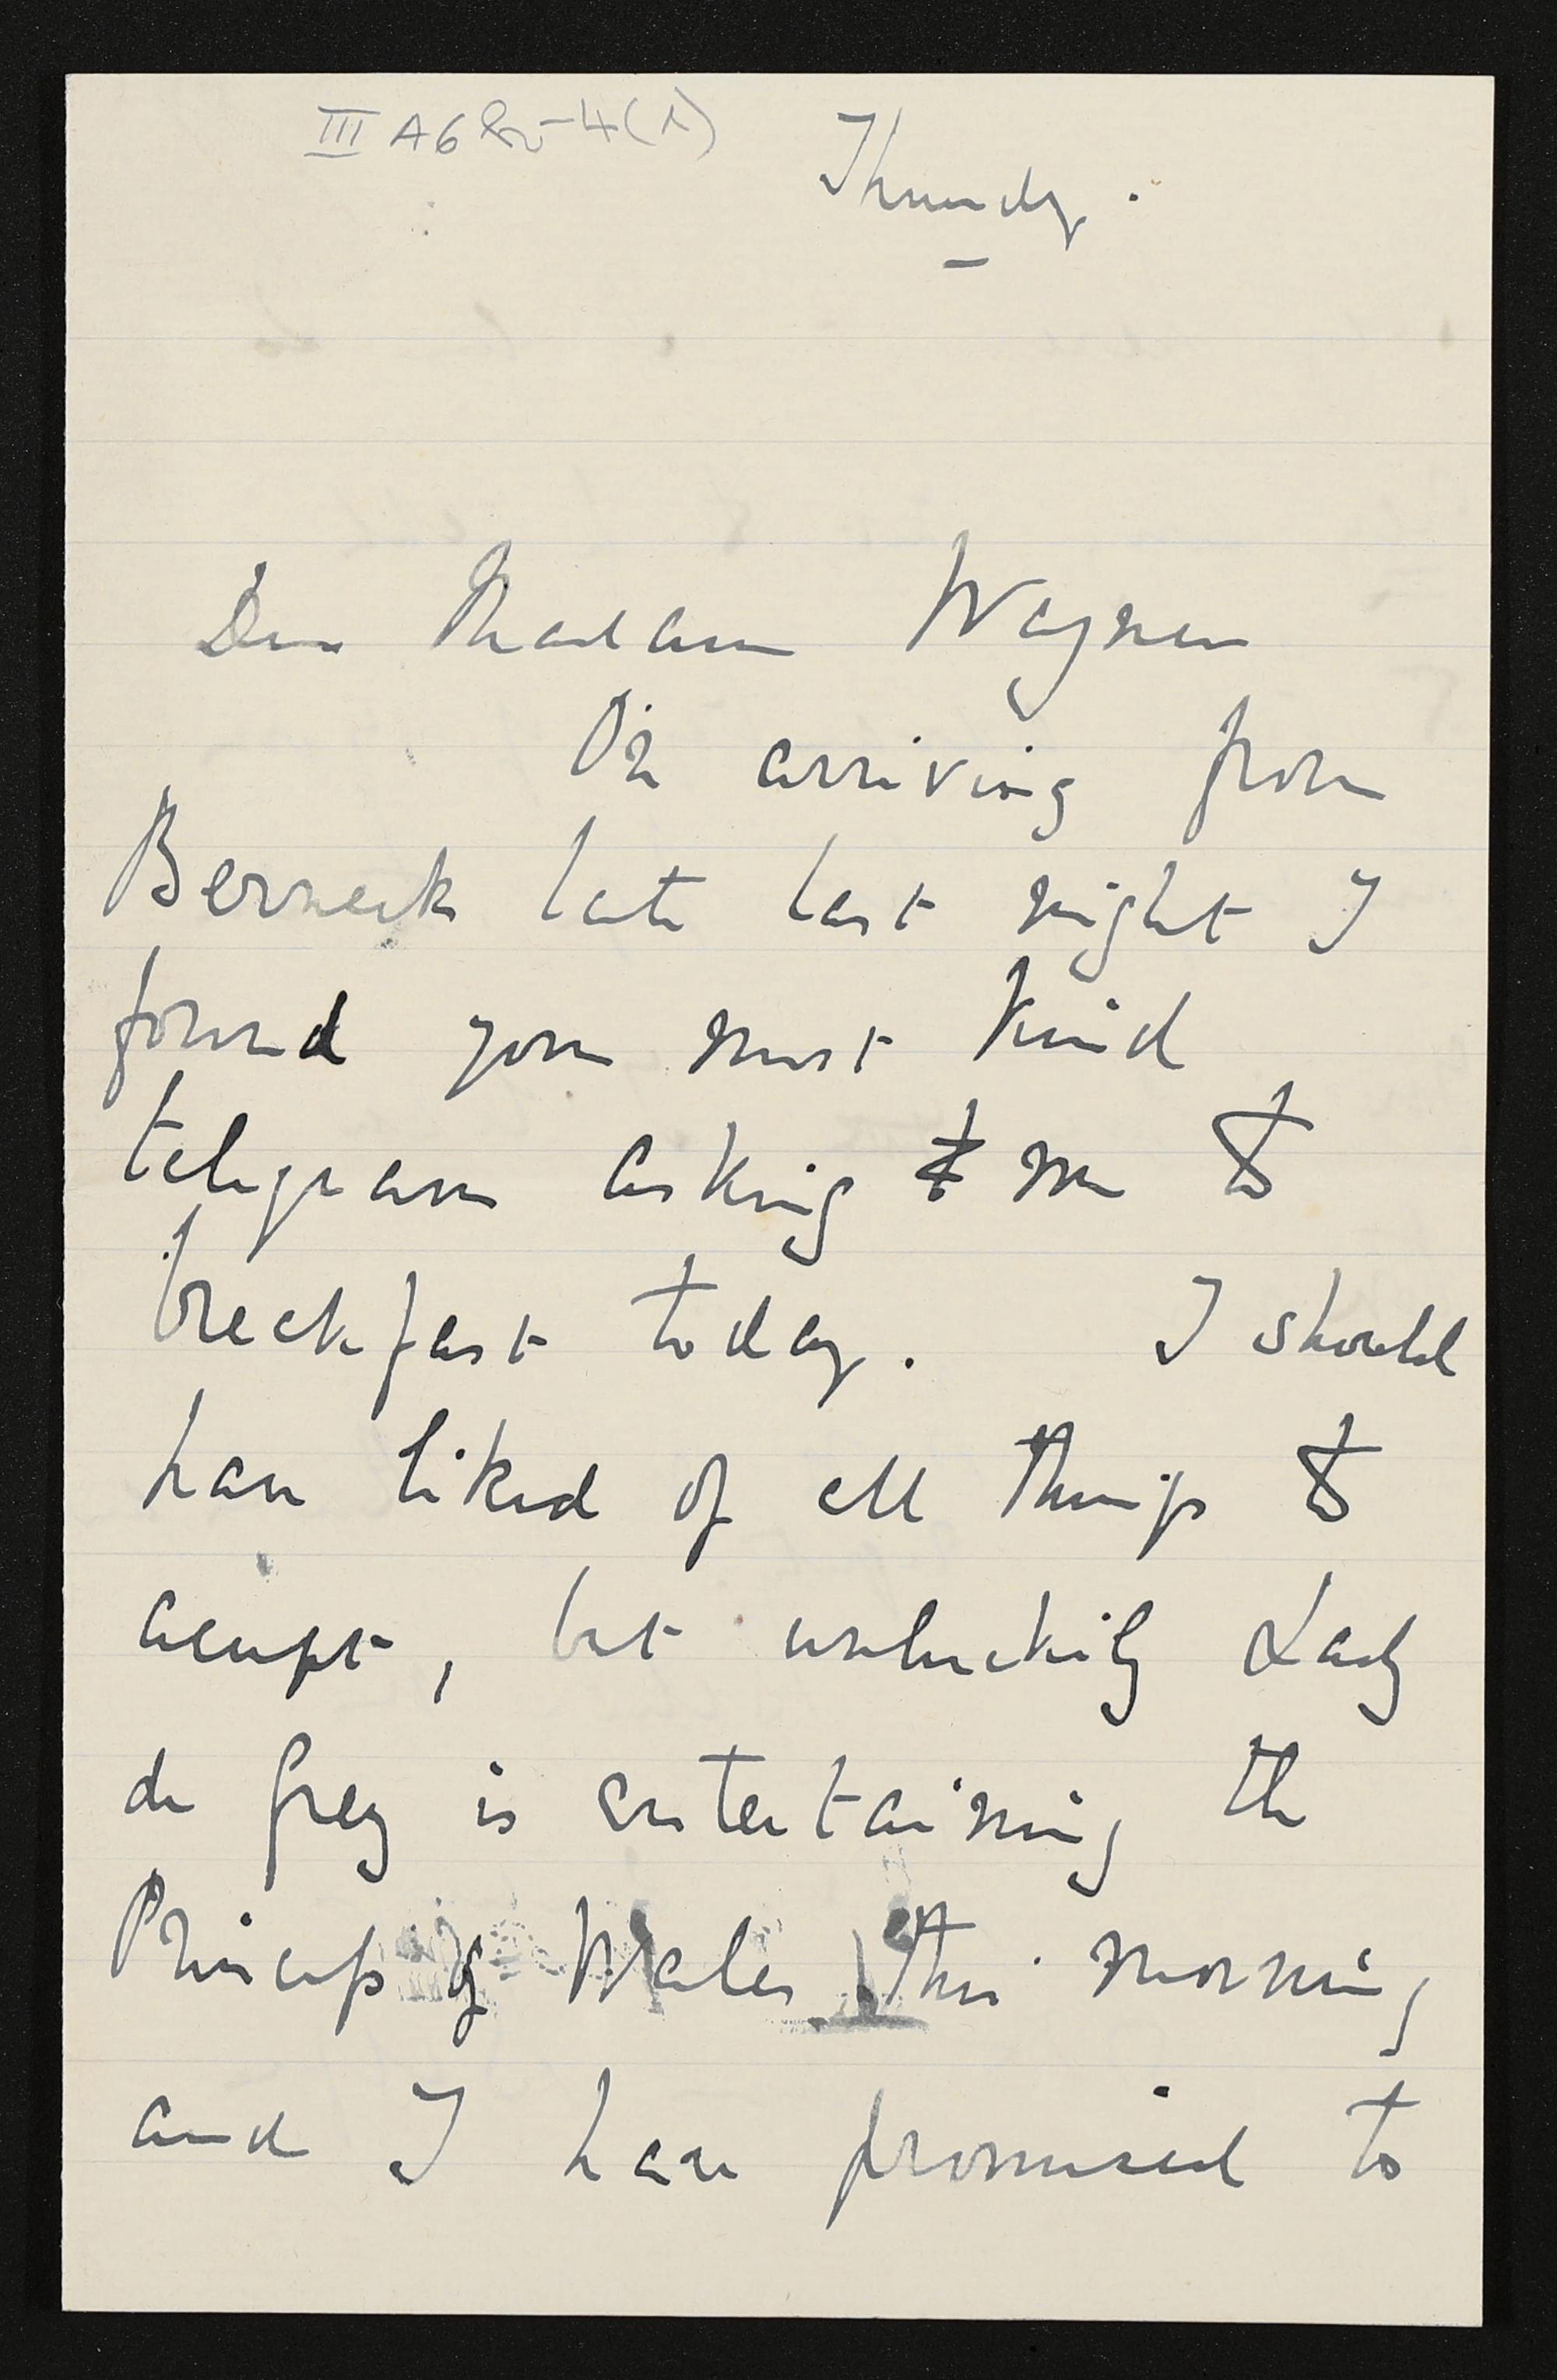 III A 6 4(1)
Thursday.
Dear Madam Wagner
On arriving from
Berneck late last night I
found your most kind
telegram asking me to
breakfast today. I should
have liked of all things to
accept, but unluckily Lady
de Grey is entertaining the
Princess of Wales this morning
and I have promised to